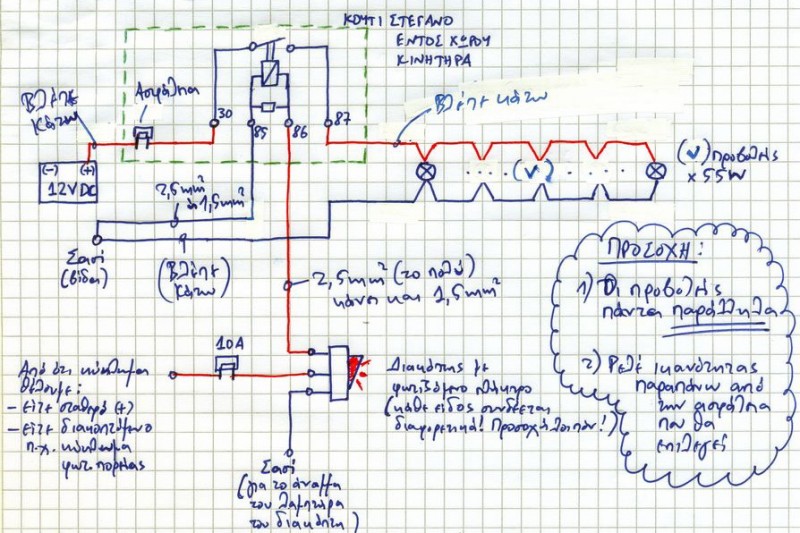 ΚΟΥΤΙ ΣΤΕΓΑΝΟ
ΕΝΤΟΣ ΧΩΡΟΥ
ΚΙΝΗΤΗΡΑ
Βλέπε
κάτω
Ασφάλεια
30
85
86
87
Βλέπε κάτω
(-) (+)
12V DC
(ν) προβολείς
x 55W
..... (ν) .....
2,5mm²
ή 1,5mm²
Σασί
(βίδα)
(Βλέπε
κάτω)
2,5mm² (το πολύ)
κάνει και 1,5mm²
ΠΡΟΣΟΧΗ:
1) Οι προβολείς
πάντα παράλληλα
2) Ρελέ ικανότητας
παραπάνω από
την ασφάλεια
που θα
επιλεγεί
10A
Από ότι κύκλωμα
θέλουμε:
- είτε σταθερό (+)
- είτε διακοπτόμενο
π.χ. κύκλωμα
φωτ. πορείας
Διακόπτης με
φωτιζόμενο πλήκτρο
(κάθε είδος συνδέεται
διαφορετικά! Προσοχή λοιπόν!)
Σασί
(για το άναμμα
του λαμπτήρα
του διακόπτη)